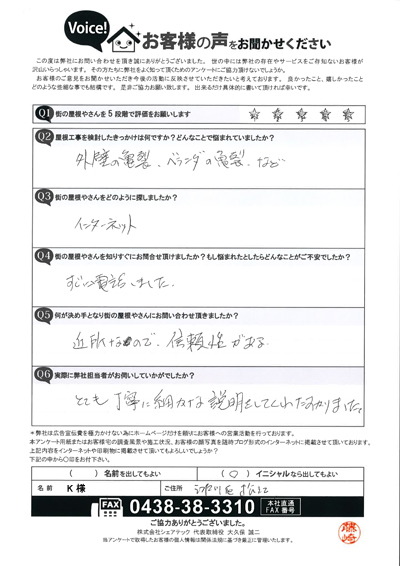 Voice!
お客様の声をお聞かせください
この度は弊社にお問い合わせを頂き誠にありがとうございました。 世の中には弊社の存在やサービスをご存知ないお客様が
沢山いらっしゃいます。 その方たちに弊社をよく知って頂くためのアンケートにご協力頂けないでしょうか。
お客様のご意見をお聞かせいただき今後の活動に反映させていただきたいと考えております。 良かったこと、嬉しかったこと
どのような些細な事でも結構です。 是非ご協力お願い致します。 出来るだけ具体的に書いて頂ければ幸いです。
Q1 街の屋根やさんを5段階で評価をお願いします
Q2 屋根工事を検討したきっかけは何ですか?どんなことで悩まれていましたか?
外壁の亀裂、ベランダの亀裂、など
Q3 街の屋根やさんをどのように探しましたか?
インターネット
Q4 街の屋根やさんを知りすぐにお問合せ頂けましたか?もし悩まれたとしたらどんなことがご不安でしたか?
すぐに電話しました。
Q5 何が決め手となり街の屋根やさんにお問い合わせ頂きましたか?
近所なので、信頼性がある。
Q6 実際に弊社担当者がお伺いしていかがでしたか?
とても丁寧に細かな説明をしてくれ
*弊社は広告宣伝費を極力かけない為にホームページだけを頼りにお客様への営業活動を行っております。
本アンケート用紙またはお客様宅の調査風景や施工状況、お客様の顔写真を随時ブログ形式のインターネットに掲載させて頂いております。
上記内容をインターネットや印刷物に掲載させて頂いてもよろしいでしょうか?
下記の中から〇印をお付下さい。
( ) 名前を出してもよい
(〇) イニシャルなら出してもよい
名前 K 様
ご住所
FAX 0438-38-3310 本社直通 FAX 番号
ご協力ありがとうございました。
株式会社シェアテック 代表取締役 大久保 誠二
当アンケートで取得したお客様の個人情報は関係法規に基づき厳正に管理いたします。